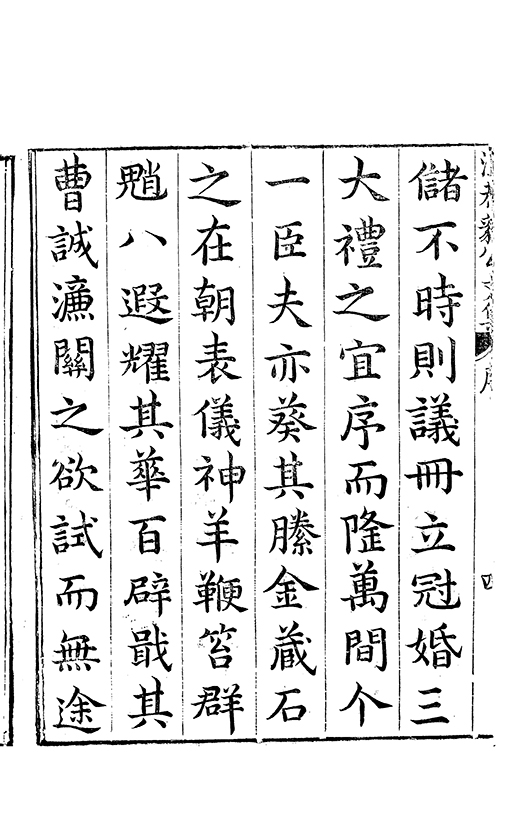 儲不時則議冊立冠婚三
大禮之宜序而隆萬間个
一臣夫亦葵其縢金蔵石
之在朝表儀神羊鞭笞群
魈八遐耀其華百辟戢其
曹誠濂關之欲試而無途